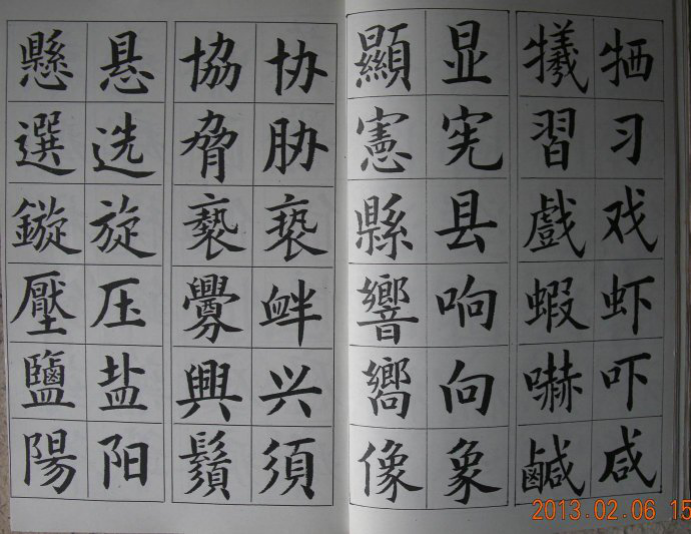 懸 悬 協 协 顯 显 犧 牺
選 选 脅 胁 憲 宪 習 习
鏇 旋 褻 亵 縣 县 戲 戏
壓 压 釁 衅 響 响 蝦 虾
鹽 盐 興 兴 嚮 向 嚇 吓
陽 阳 鬚 須 像 象 鹹 咸
2013.02.06 15